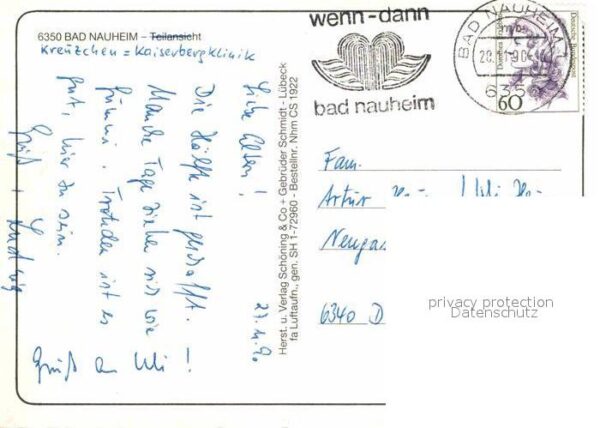 6350 BAD NAUHEIM – Teilansicht
Kreuzchen = Kaiserbergklinik
27.11.90
Liebe Eltern!
Die Hälfte ist geschafft.
Manche Tage ziehen sich wie
Gummi. Trotzdem ist es
gut, hier zu sein.
Gruß + Ludwig
Gruß an Uli!
Herst. u. Verlag Schöning & Co + Gebrüder Schmidt - Lübeck
fa Luftaufn., gen. SH 1-72960 - Bestellnr. Nhm CS 1922
wenn-dann
bad nauheim
BAD NAUHEIM 1
6350
Deutsche Bundespost
60
Fam.
Artur
Neugas
6340 D
privacy protection
Datenschutz